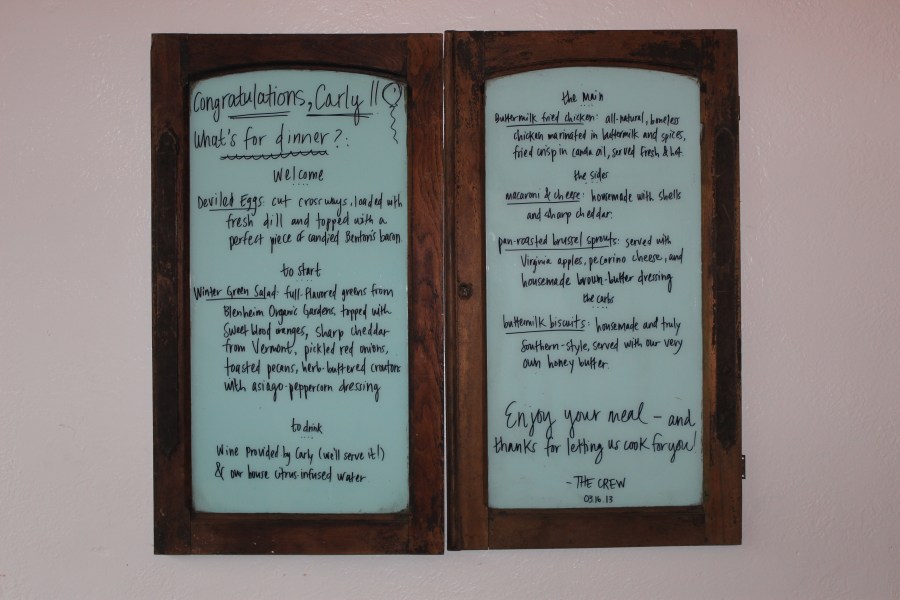 Congratulations, Carly!!
What's for dinner?:
Welcome
Deviled Eggs: cut crossways, loaded with
fresh dill and topped with a
perfect piece of candied Benton's bacon.
to start
Winter Green Salad: full-flavored greens from
Blenheim Organic Gardens, topped with
sweet blood oranges, sharp cheddar
from Vermont, pickled red onions,
toasted pecans, herb-buttered croutons
with asiago-peppercorn dressing
to drink
Wine provided by Carly (we'll serve it!)
& our house citrus-infused water
the main
Buttermilk fried chicken: all-natural, boneless
chicken marinated in buttermilk and spices,
fried crisp in canola oil, served fresh & hot.
the sides
macaroni & cheese: housemade with shells
and sharp cheddar.
pan-roasted brussel sprouts: served with
Virginia apples, pecorino cheese, and
housemade brown-butter dressing
the carbs
buttermilk biscuits: housemade and truly
Southern-style, served with our very
own honey butter.
Enjoy your meal - and
thanks for letting us cook for you!
- THE CREW
03.16.13